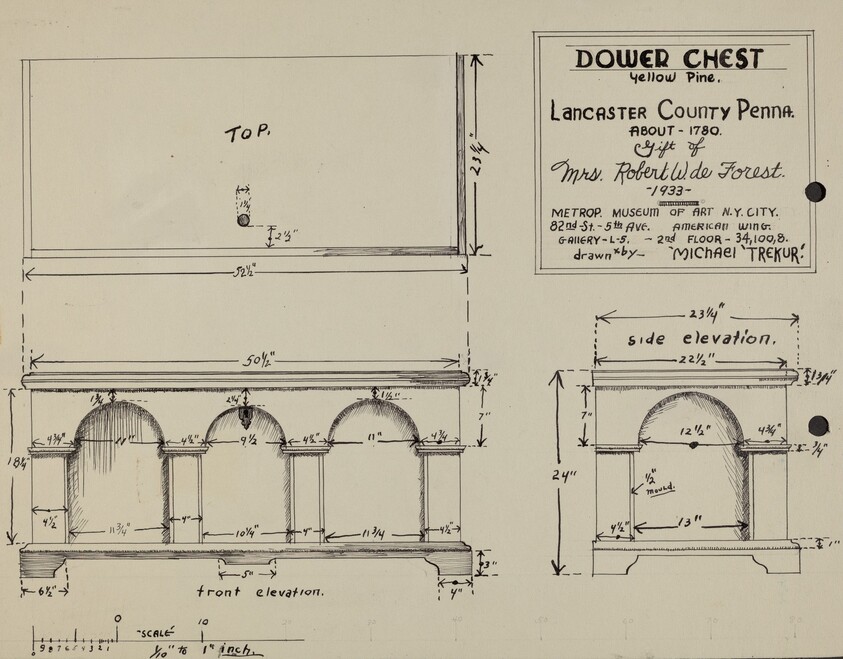 DOWER CHEST
Yellow Pine.
LANCASTER COUNTY PENNA.
ABOUT - 1780.
Gift of
Mrs. Robert W de Forest.
-1933-
METROP. MUSEUM OF ART N.Y. CITY.
82nd-St.-5th AVE. AMERICAN WING.
GALLERY-L-5. - 2nd FLOOR - 34,100,8.
drawn by- "MICHAEl TREKUR".
TOP.
1¾"
2½"
23¼"
52½"
50½"
1¾"
1¾
2¼"
1½"
7"
4¾"
11"
4½"
9½
4½"
11"
4¾
18¼"
4½"
11¾"
4"
10¼"
4"
11¾
4½"
3"
6½"
5"
4"
front elevation.
23¼"
side elevation.
22½"
1¾"
7"
12½"
4¾"
¾"
24"
½"
mould.
4½"
13"
1"
0
10
"SCALE"
0 9 8 7 6 5 4 3 2 1
1/10" to 1" inch.